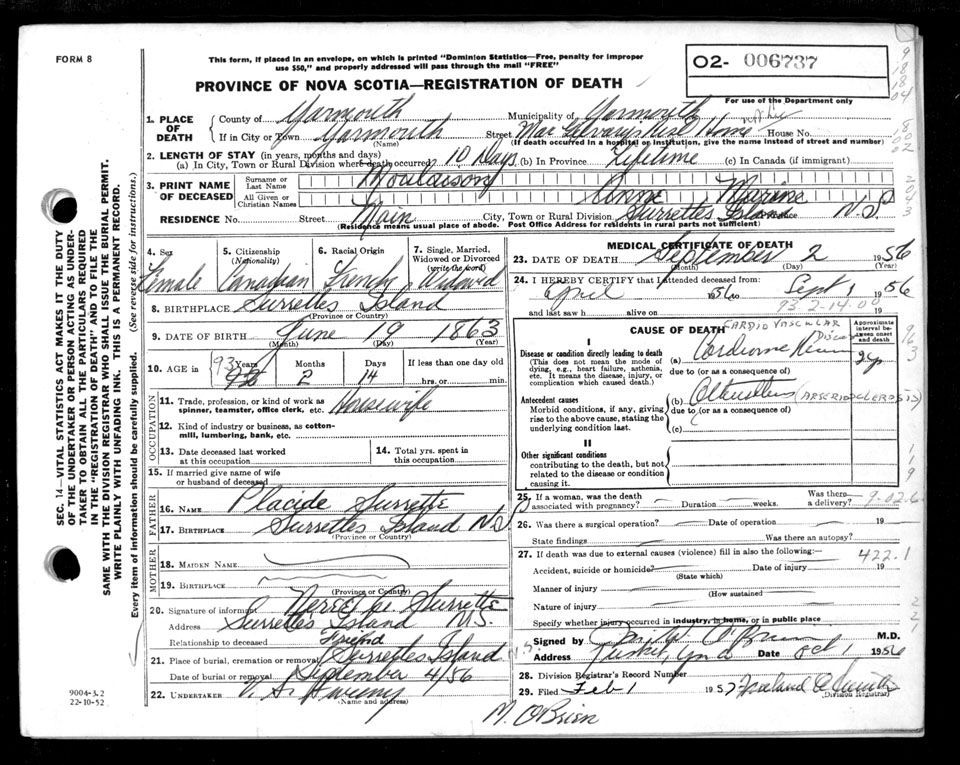 FORM 8
This form, if placed in an envelope, on which is printed "Dominion Statistics—Free, penalty for improper
use $50," and properly addressed will pass through the mail "FREE"
O2- 006737
For use of the Department only
PROVINCE OF NOVA SCOTIA—REGISTRATION OF DEATH
1. PLACE OF DEATH
County of Yarmouth Municipality of Yarmouth
If in City or Town Yarmouth Street Home House No.
(Name) (If death occurred in a hospital or institution, give the name instead of street and number)
2. LENGTH OF STAY (in years, months and days)
(a) In City, Town or Rural Division where death occurred 10 Days (b) In Province Lifetime (c) In Canada (if immigrant)
3. PRINT NAME OF DECEASED
Surname or Last Name Moulaison
All Given or Christian Names Anne
RESIDENCE No. Street Main City, Town or Rural Division Surrettes Island Province N.S.
(Residence means usual place of abode. Post Office Address for residents in rural parts not sufficient)
4. Sex Female
5. Citizenship (Nationality) Canadian
6. Racial Origin French
7. Single, Married, Widowed or Divorced (write the word) Widowed
8. BIRTHPLACE Surrettes Island
(Province or Country)
9. DATE OF BIRTH June 19 1863
(Month) (Day) (Year)
10. AGE in 93 Years 2 Months 14 Days If less than one day old
hrs. or min.
OCCUPATION
11. Trade, profession, or kind of work as spinner, teamster, office clerk, etc. Housewife
12. Kind of industry or business, as cotton-mill, lumbering, bank, etc.
13. Date deceased last worked at this occupation
14. Total yrs. spent in this occupation
15. If married give name of wife or husband of deceased
FATHER
16. NAME Placide Surrette
17. BIRTHPLACE Surrettes Island N.S.
(Province or Country)
MOTHER
18. MAIDEN NAME
19. BIRTHPLACE
(Province or Country)
20. Signature of informant Surrette
Address Surrettes Island N.S.
Relationship to deceased
21. Place of burial, cremation or removal Surrettes Island
Date of burial or removal September 4/56
22. UNDERTAKER
(Name and address)
MEDICAL CERTIFICATE OF DEATH
23. DATE OF DEATH September 2 1956
(Month) (Day) (Year)
24. I HEREBY CERTIFY that I attended deceased from
April 1956 to Sept 1 1956
and last saw h alive on 19
93-2-14.00
CAUSE OF DEATH
Approximate interval between onset and death
CARDIO VASCULAR
I
Disease or condition directly leading to death
(This does not mean the mode of dying, e.g., heart failure, asthenia, etc. It means the disease, injury, or complication which caused death.)
(a)
due to (or as a consequence of)
Antecedent causes
Morbid conditions, if any, giving rise to the above cause, stating the underlying condition last.
(b) (ARTERIOSCLEROSIS)
due to (or as a consequence of)
(c)
II
Other significant conditions
contributing to the death, but not related to the disease or condition causing it.
25. If a woman, was the death associated with pregnancy? Duration weeks. Was there a delivery?
26. Was there a surgical operation? Date of operation 19
State findings Was there an autopsy?
27. If death was due to external causes (violence) fill in also the following:—
422.1
Accident, suicide or homicide? Date of injury 19
(State which)
Manner of injury
(How sustained)
Nature of injury
Specify whether injury occurred in industry, in home, or in public place
Signed by O'Brien M.D.
Address Tusket, Date Oct 1 1956
28. Division Registrar's Record Number
29. Filed Feb 1 1957
Division Registrar
M. O'Brien
9004-3.2
22-10-52
SEC. 14—VITAL STATISTICS ACT MAKES IT THE DUTY
OF THE UNDERTAKER OR PERSON ACTING AS UNDER-
TAKER TO OBTAIN ALL THE PARTICULARS REQUIRED
IN THE "REGISTRATION OF DEATH" AND TO FILE THE
SAME WITH THE DIVISION REGISTRAR WHO SHALL ISSUE THE BURIAL PERMIT.
WRITE PLAINLY WITH UNFADING INK. THIS IS A PERMANENT RECORD.
Every item of information should be carefully supplied. (See reverse side for instructions.)